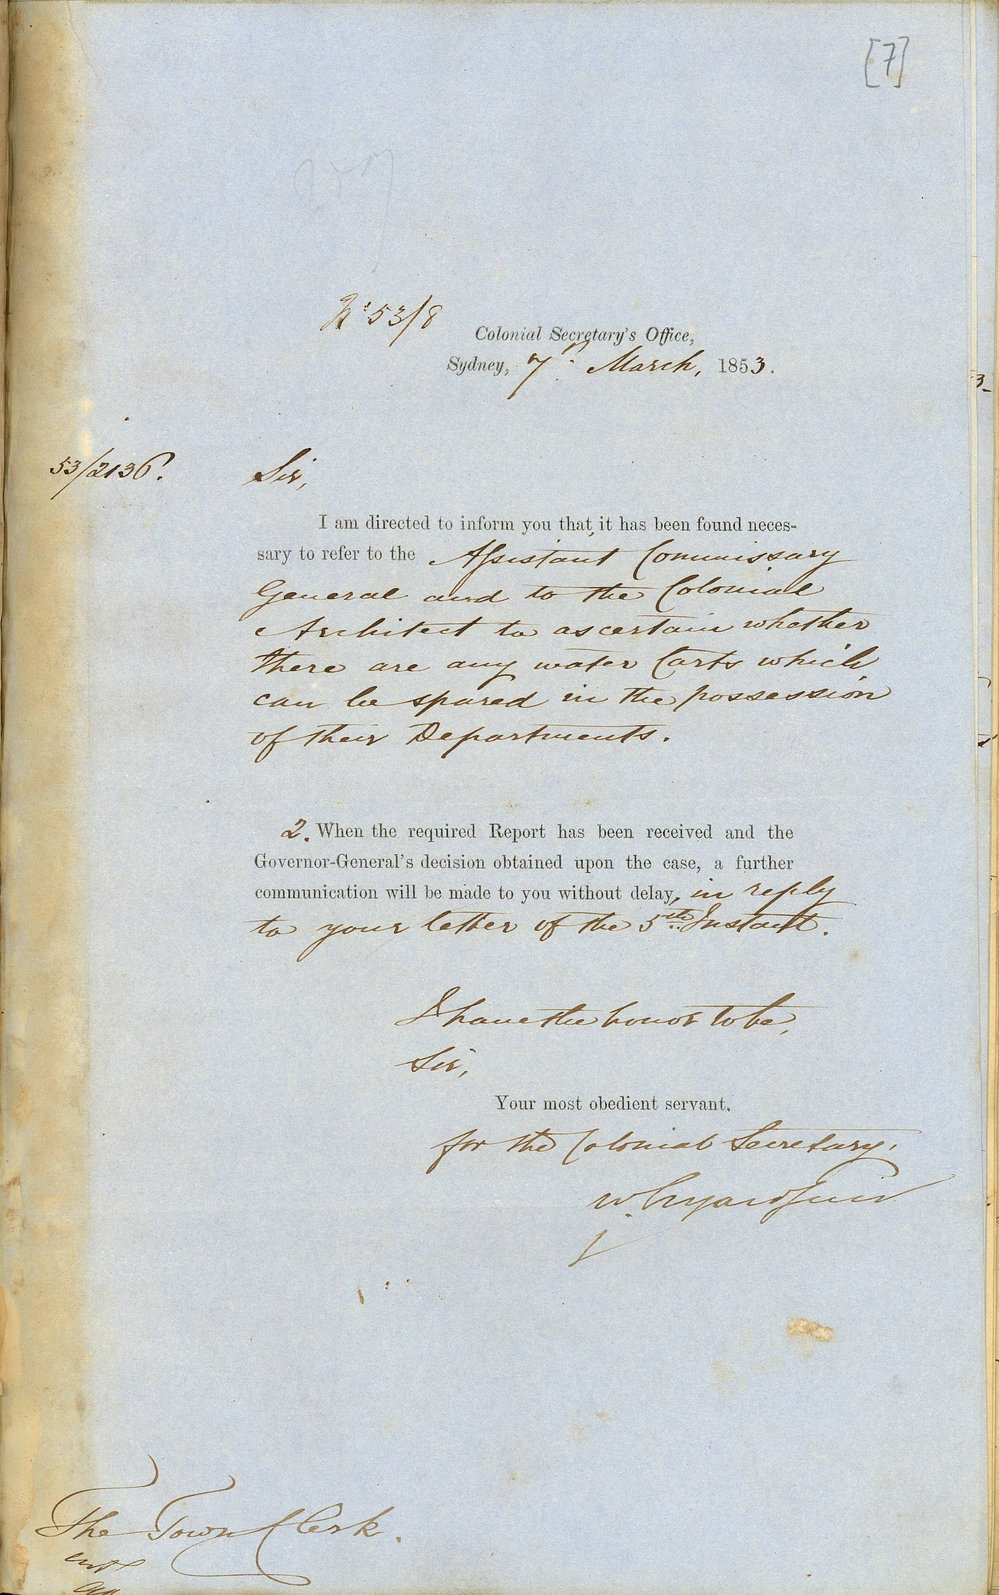 [7]
No 53/8
Colonial Secretary's Office,
Sydney, 7th March, 1853.
53/2136.
Sir,
I am directed to inform you that, it has been found neces-
sary to refer to the Assistant Commissary
General and to the Colonial
Architect to ascertain whether
there are any water Carts which
can be spared in the possession
of their Departments.
2. When the required Report has been received and the
Governor-General's decision obtained upon the case, a further
communication will be made to you without delay, in reply
to your letter of the 5th Instant.
I have the honor to be,
Sir,
Your most obedient servant.
for the Colonial Secretary.
W.
The Town Clerk.